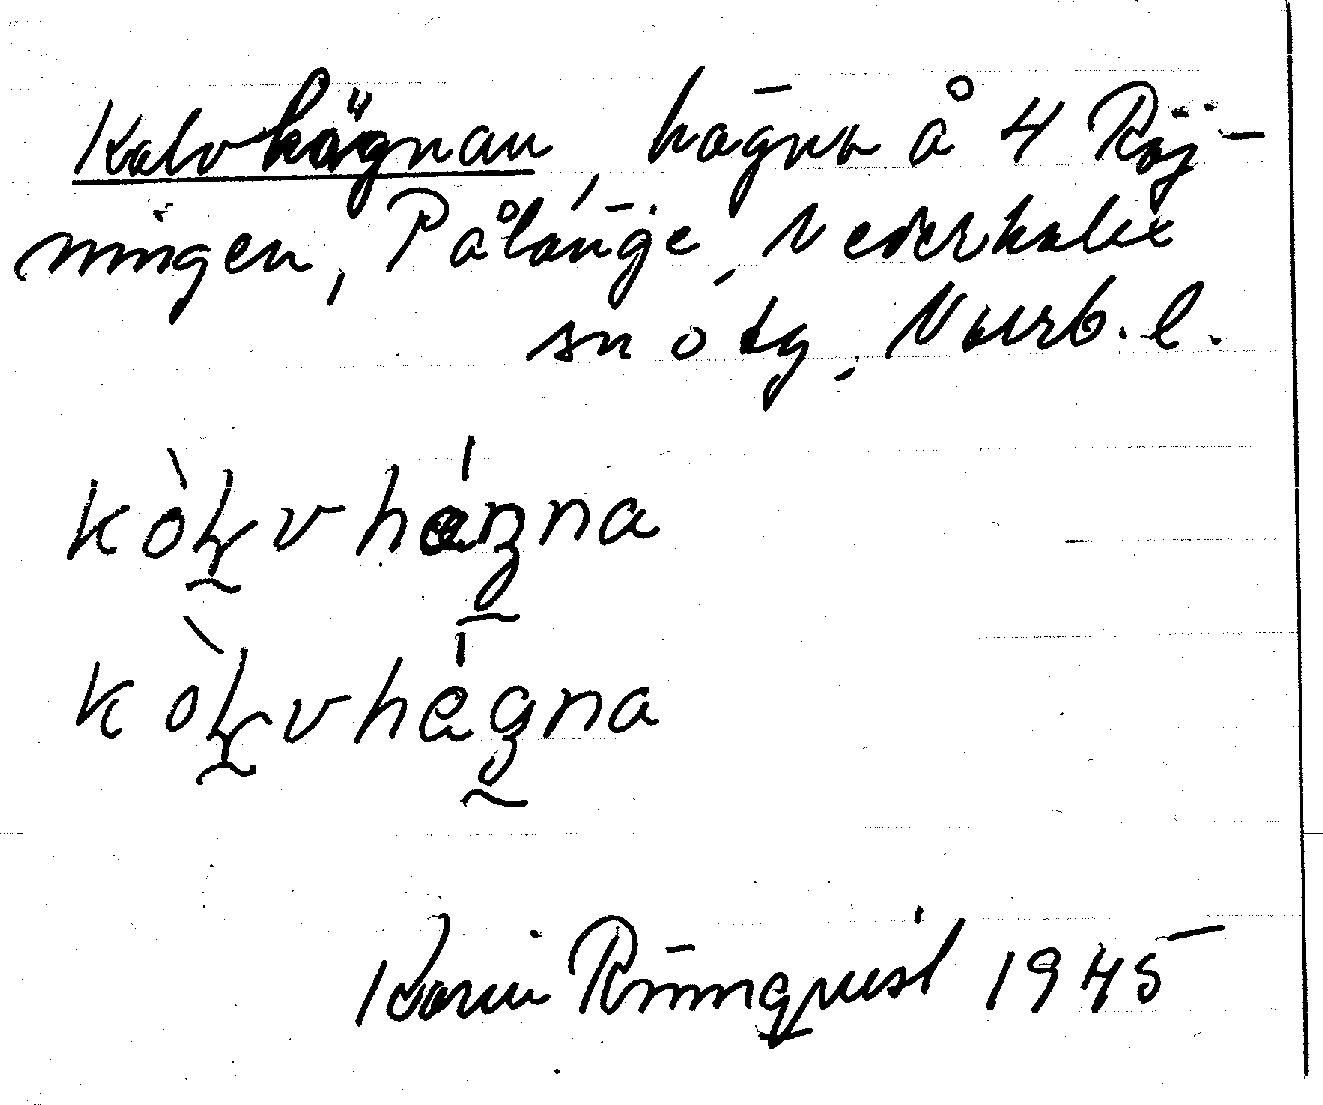 Kalvhägnan, hägna å 4 Röj-
ningen, Pålänge, Nederkalix
sn o tg, Norrb. l.
kòl̥vhágna
kòl̥vhégna
Karin Rönnquist 1945